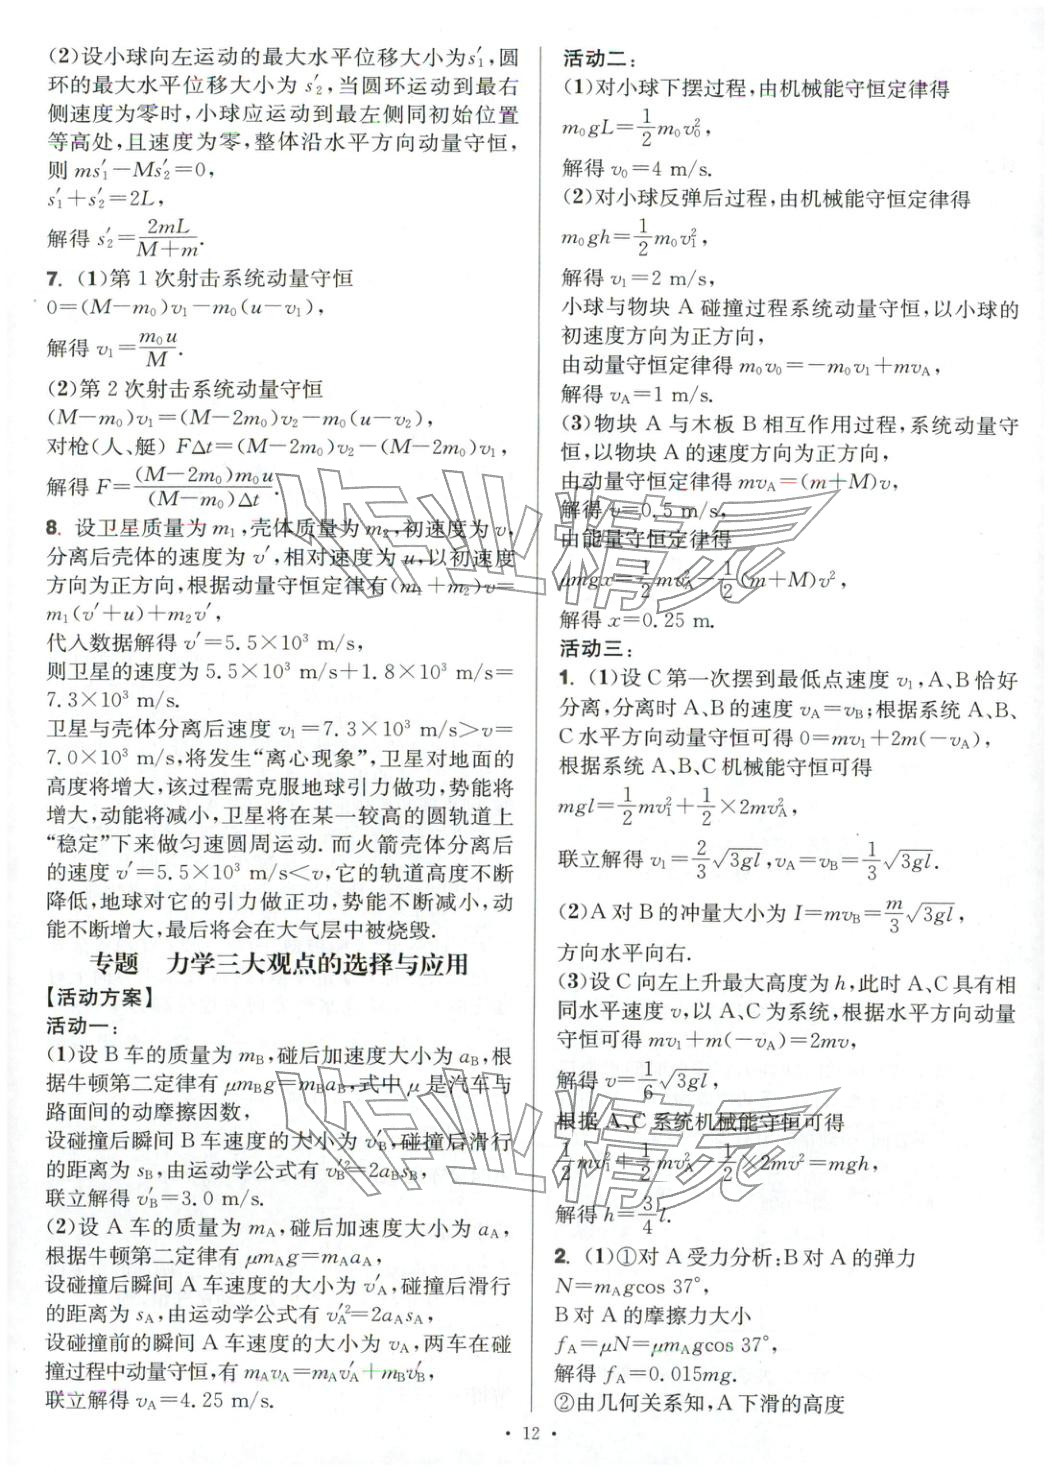 (2)设小球向左运动的最大水平位移大小为s₁′,圆
环的最大水平位移大小为 s₂′,当圆环运动到最右
侧速度为零时,小球应运动到最左侧同初始位置
等高处,且速度为零,整体沿水平方向动量守恒,
则 ms₁′－Ms₂′＝0,
s₁′＋s₂′＝2L,
解得 s₂′＝2mL/(M＋m).
7. (1)第 1 次射击系统动量守恒
0＝(M－m₀)v₁－m₀(u－v₁),
解得 v₁＝m₀u/M.
(2)第 2 次射击系统动量守恒
(M－m₀)v₁＝(M－2m₀)v₂－m₀(u－v₂),
对枪(人、艇) FΔt＝(M－2m₀)v₂－(M－2m₀)v₁,
解得 F＝(M－2m₀)m₀u/((M－m₀)Δt).
8. 设卫星质量为 m₁,壳体质量为 m₂,初速度为 v,
分离后壳体的速度为 v′,相对速度为 u,以初速度
方向为正方向,根据动量守恒定律有(m₁＋m₂)v＝
m₁(v′＋u)＋m₂v′,
代入数据解得 v′＝5.5×10³ m/s,
则卫星的速度为 5.5×10³ m/s＋1.8×10³ m/s＝
7.3×10³ m/s.
卫星与壳体分离后速度 v₁＝7.3×10³ m/s＞v＝
7.0×10³ m/s,将发生“离心现象”,卫星对地面的
高度将增大,该过程需克服地球引力做功,势能将
增大,动能将减小,卫星将在某一较高的圆轨道上
“稳定”下来做匀速圆周运动. 而火箭壳体分离后
的速度 v′＝5.5×10³ m/s＜v,它的轨道高度不断
降低,地球对它的引力做正功,势能不断减小,动
能不断增大,最后将会在大气层中被烧毁.
专题 力学三大观点的选择与应用
【活动方案】
活动一:
(1)设 B 车的质量为 mB,碰后加速度大小为 aB,根
据牛顿第二定律有 μmBg＝mBaB,式中 μ 是汽车与
路面间的动摩擦因数,
设碰撞后瞬间 B 车速度的大小为 vB′,碰撞后滑行
的距离为 sB,由运动学公式有 vB′²＝2aBsB,
联立解得 vB′＝3.0 m/s.
(2)设 A 车的质量为 mA,碰后加速度大小为 aA,
根据牛顿第二定律有 μmAg＝mAaA,
设碰撞后瞬间 A 车速度的大小为 vA′,碰撞后滑行
的距离为 sA,由运动学公式有 vA′²＝2aAsA,
设碰撞前的瞬间 A 车速度的大小为 vA,两车在碰
撞过程中动量守恒,有 mAvA＝mAvA′＋mBvB′,
联立解得 vA＝4.25 m/s.
活动二:
(1)对小球下摆过程,由机械能守恒定律得
m₀gL＝1/2 m₀v₀²,
解得 v₀＝4 m/s.
(2)对小球反弹后过程,由机械能守恒定律得
m₀gh＝1/2 m₀v₁²,
解得 v₁＝2 m/s,
小球与物块 A 碰撞过程系统动量守恒,以小球的
初速度方向为正方向,
由动量守恒定律得 m₀v₀＝－m₀v₁＋mvA,
解得 vA＝1 m/s.
(3)物块 A 与木板 B 相互作用过程,系统动量守
恒,以物块 A 的速度方向为正方向,
由动量守恒定律得 mvA＝(m＋M)v,
解得 v＝0.5 m/s,
由能量守恒定律得
μmgx＝1/2 mvA²－1/2(m＋M)v²,
解得 x＝0.25 m.
活动三:
1. (1)设 C 第一次摆到最低点速度 v₁,A、B 恰好
分离,分离时 A、B 的速度 vA＝vB;根据系统 A、B、
C 水平方向动量守恒可得 0＝mv₁＋2m(－vA),
根据系统 A、B、C 机械能守恒可得
mgl＝1/2 mv₁²＋1/2×2mvA²,
联立解得 v₁＝2/3 √3gl,vA＝vB＝1/3 √3gl.
(2)A 对 B 的冲量大小为 I＝mvB＝m/3 √3gl,
方向水平向右.
(3)设 C 向左上升最大高度为 h,此时 A、C 具有相
同水平速度 v,以 A、C 为系统,根据水平方向动量
守恒可得 mv₁＋m(－vA)＝2mv,
解得 v＝1/6 √3gl,
根据 A、C 系统机械能守恒可得
1/2 mv₁²＋1/2 mvA²－1/2×2mv²＝mgh,
解得 h＝3/4 l.
2. (1)①对 A 受力分析:B 对 A 的弹力
N＝mAgcos 37°,
B 对 A 的摩擦力大小
fA＝μN＝μmAgcos 37°,
解得 fA＝0.015mg.
②由几何关系知,A 下滑的高度
· 12 ·
作业精灵
作业精灵